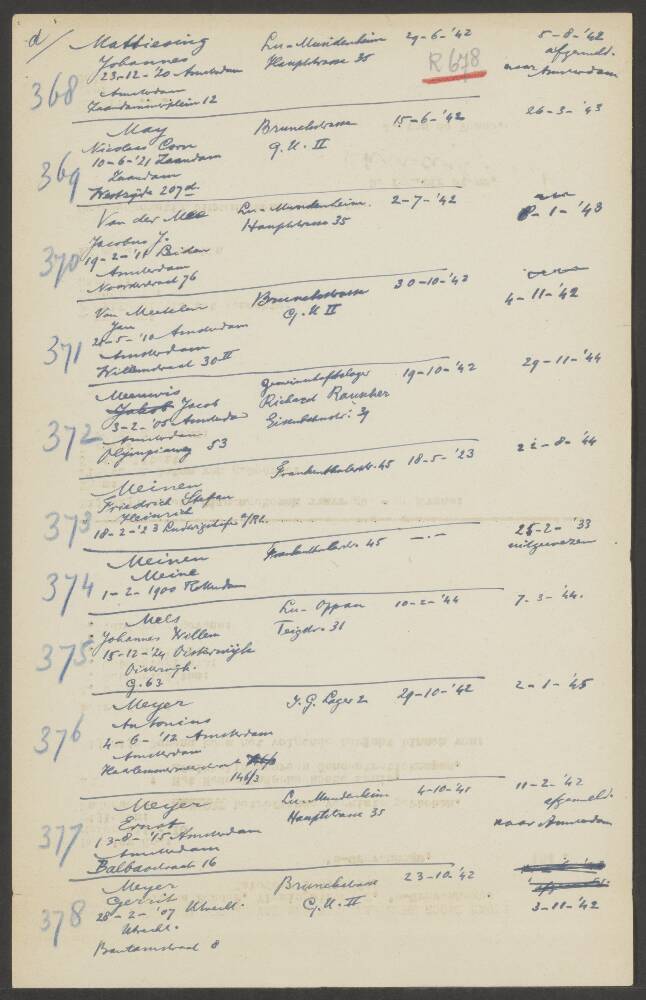 d/
368
Mattiesing Lu-Mundenheim 29-6-'42 5-8-'42
Johannes Hauptstrasse 35 afgemeld.
23-12-'20 Amsterdam naar Amsterdam
Amsterdam
12
R 678
369
May Brunckstrasse 15-6-'42 26-3-'43
Nicolaas Corn G.U. II
10-6-'21 Zaandam
Zaandam
Westzijde 207d.
370
Van der Mee Lu-Mundenheim. 2-7-'42
Jacobus J. Hauptstrasse 35 8-1-'43
19-2-'11 Leiden
Amsterdam
Noorderstraat 76
371
Van Mechelen Brunckstrasse 30-10-'42
Jan G.U II 4-11-'42
21-5-'10 Amsterdam
Amsterdam
Willemstraat 30 II
372
Meeuwis Gemeinschaftslager 19-10-'42 29-11-'44
Jacob Richard Rauscher
3-2-'05 Amsterdam Eisenbahnstr: 39
Amsterdam
Olympiaweg 53
373
Meinen Frankenthalerstr. 45 18-5-'23 22-8-'44
Friedrich Stefan
Heinrich
18-2-'23 Ludwigshafen a/Rh.
374
Meinen Frankenthalerstr. 45 -.- 25-2-'33
Meine uitgewezen
1-2-1900 Rotterdam
375
Mels Lu-Oppau 10-2-'44 7-3-'44.
Johannes Willem 31
15-12-'24 Oisterwijk
Oisterwijk.
G.63
376
Meyer I.G. Lager 2 29-10-'42 2-1-'45
Antonius
4-6-'12 Amsterdam
Amsterdam
Haarlemmermeerstraat
146/3
377
Meyer Lu-Mundenheim 4-10-'41 11-2-'42
Ernst Hauptstrasse 35 afgemeld.
13-8-'15 Amsterdam naar Amsterdam
Amsterdam
Balboastraat 16
378
Meyer Brunckstrasse 23-10-'42
Gerrit G.U. II
28-2-'07 Utrecht. 3-11-'42
Utrecht.
Bantamstraat 8